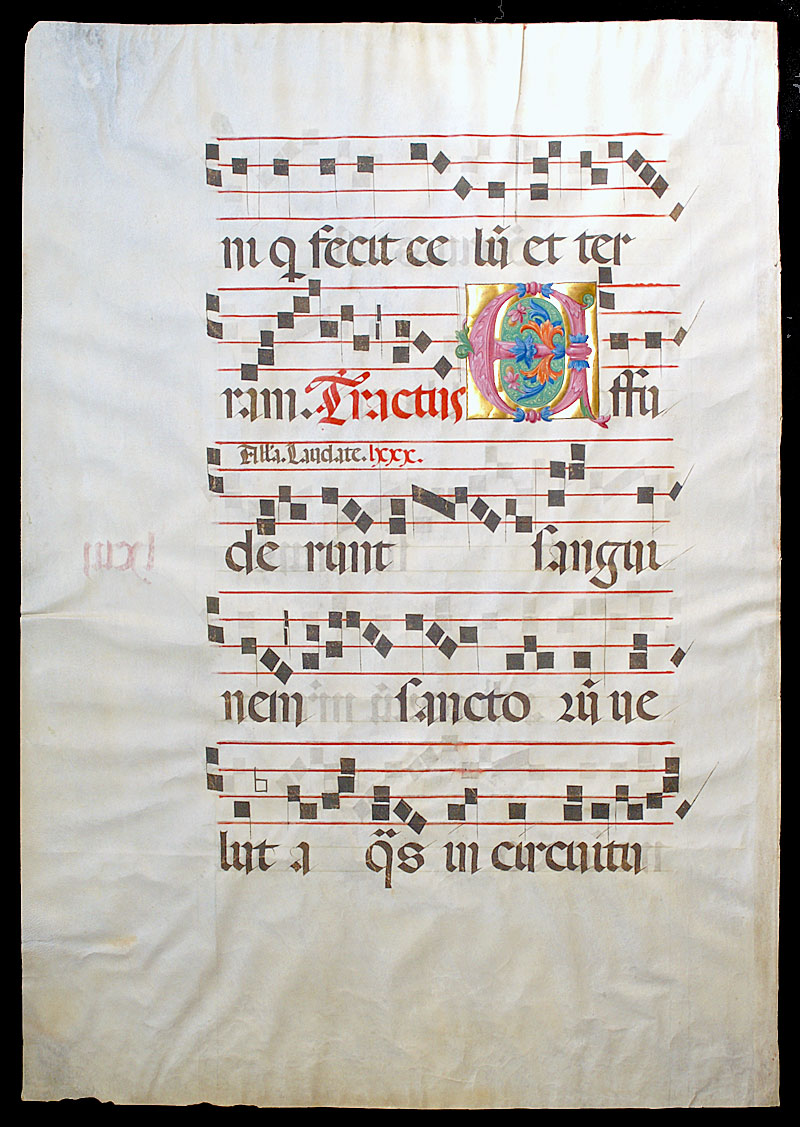 ni q fecit ce lũ et ter
ram. Tractus Effu
Alla. Laudate. lxxx.
de runt sangui
nem sancto rũ ve
lut a q̃s in circuitu